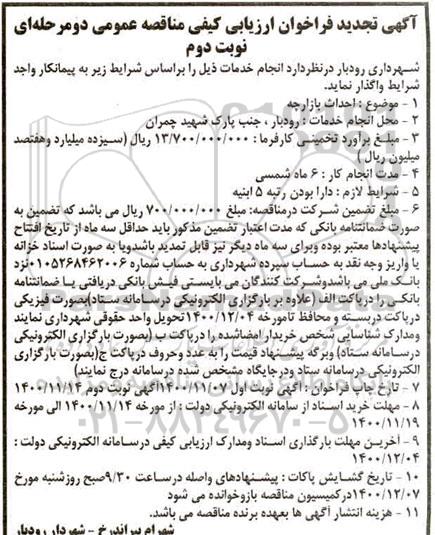 آگهی تجدید فراخوان ارزیابی کیفی مناقصه عمومی دومرحله‌ای
نوبت دوم
شهرداری رودبار درنظردارد انجام خدمات ذیل را براساس شرایط زیر به پیمانکار واجد
شرایط واگذار نماید.
۱ - موضوع : احداث بازارچه
۲ - محل انجام خدمات : رودبار ، جنب پارک شهید چمران
۳ - مبلغ برآورد تخمینی کارفرما : ۱۳/۷۰۰/۰۰۰/۰۰۰ ریال (سیزده میلیارد وهفتصد
میلیون ریال )
۴ - مدت انجام کار : ۶ ماه شمسی
۵ - شرایط لازم : دارا بودن رتبه ۵ ابنیه
۶ - مبلغ تضمین شرکت درمناقصه: مبلغ ۷۰۰/۰۰۰/۰۰۰ ریال می باشد که تضمین به
صورت ضمانتنامه بانکی که مدت اعتبار تضمین مذکور باید حداقل سه ماه از تاریخ افتتاح
پیشنهادها معتبر بوده وبرای سه ماه دیگر نیز قابل تمدید باشدویا به صورت اسناد خزانه
یا واریز وجه نقد به حساب سپرده شهرداری به حساب شماره ۰۱۰۵۲۶۸۴۶۲۰۰۶نزد
بانک ملی می باشدوشرکت کنندگان می بایستی فیش بانکی دریافتی یا ضمانتنامه
بانکی را درپاکت الف (علاوه بر بارگزاری الکترونیکی درسامانه ستاد)بصورت فیزیکی
درپاکت دربسته و محافظ تامورخه ۱۴۰۰/۱۲/۰۴ تحویل واحد حقوقی شهرداری نمایند
ومدارک شناسایی شخص خریدار امضاشده را درپاکت ب (بصورت بارگزاری الکترونیکی
درسامانه ستاد) وبرگه پیشنهاد قیمت را به عدد وحروف درپاکت ج(بصورت بارگزاری
الکترونیکی درسامانه ستاد ودرجایگاه مشخص شده درسامانه درج نمایند)
۷ - تارخ چاپ فراخوان : آگهی نوبت اول ۱۴۰۰/۱۱/۰۷ آگهی نوبت دوم ۱۴۰۰/۱۱/۱۴
۸ - مهلت خرید اسناد از سامانه الکترونیکی دولت : از مورخه ۱۴۰۰/۱۱/۱۴ الی مورخه
۱۴۰۰/۱۱/۱۹
۹ - آخرین مهلت بارگذاری اسناد ومدارک ارزیابی کیفی درسامانه الکترونیکی دولت :
۱۴۰۰/۱۲/۰۴
۱۰ - تاریخ گشایش پاکات : پیشنهادهای واصله درساعت ۹/۳۰صبح روزشنبه مورخ
۱۴۰۰/۱۲/۰۷درکمیسیون مناقصه بازوخوانده می شود
۱۱ - هزینه انتشار آگهی ها بعهده برنده مناقصه می باشد.
شهرام پیراندرخ - شهردار رودبار
۰۲۱-۸۸۳۴۹۶۷۰-۵